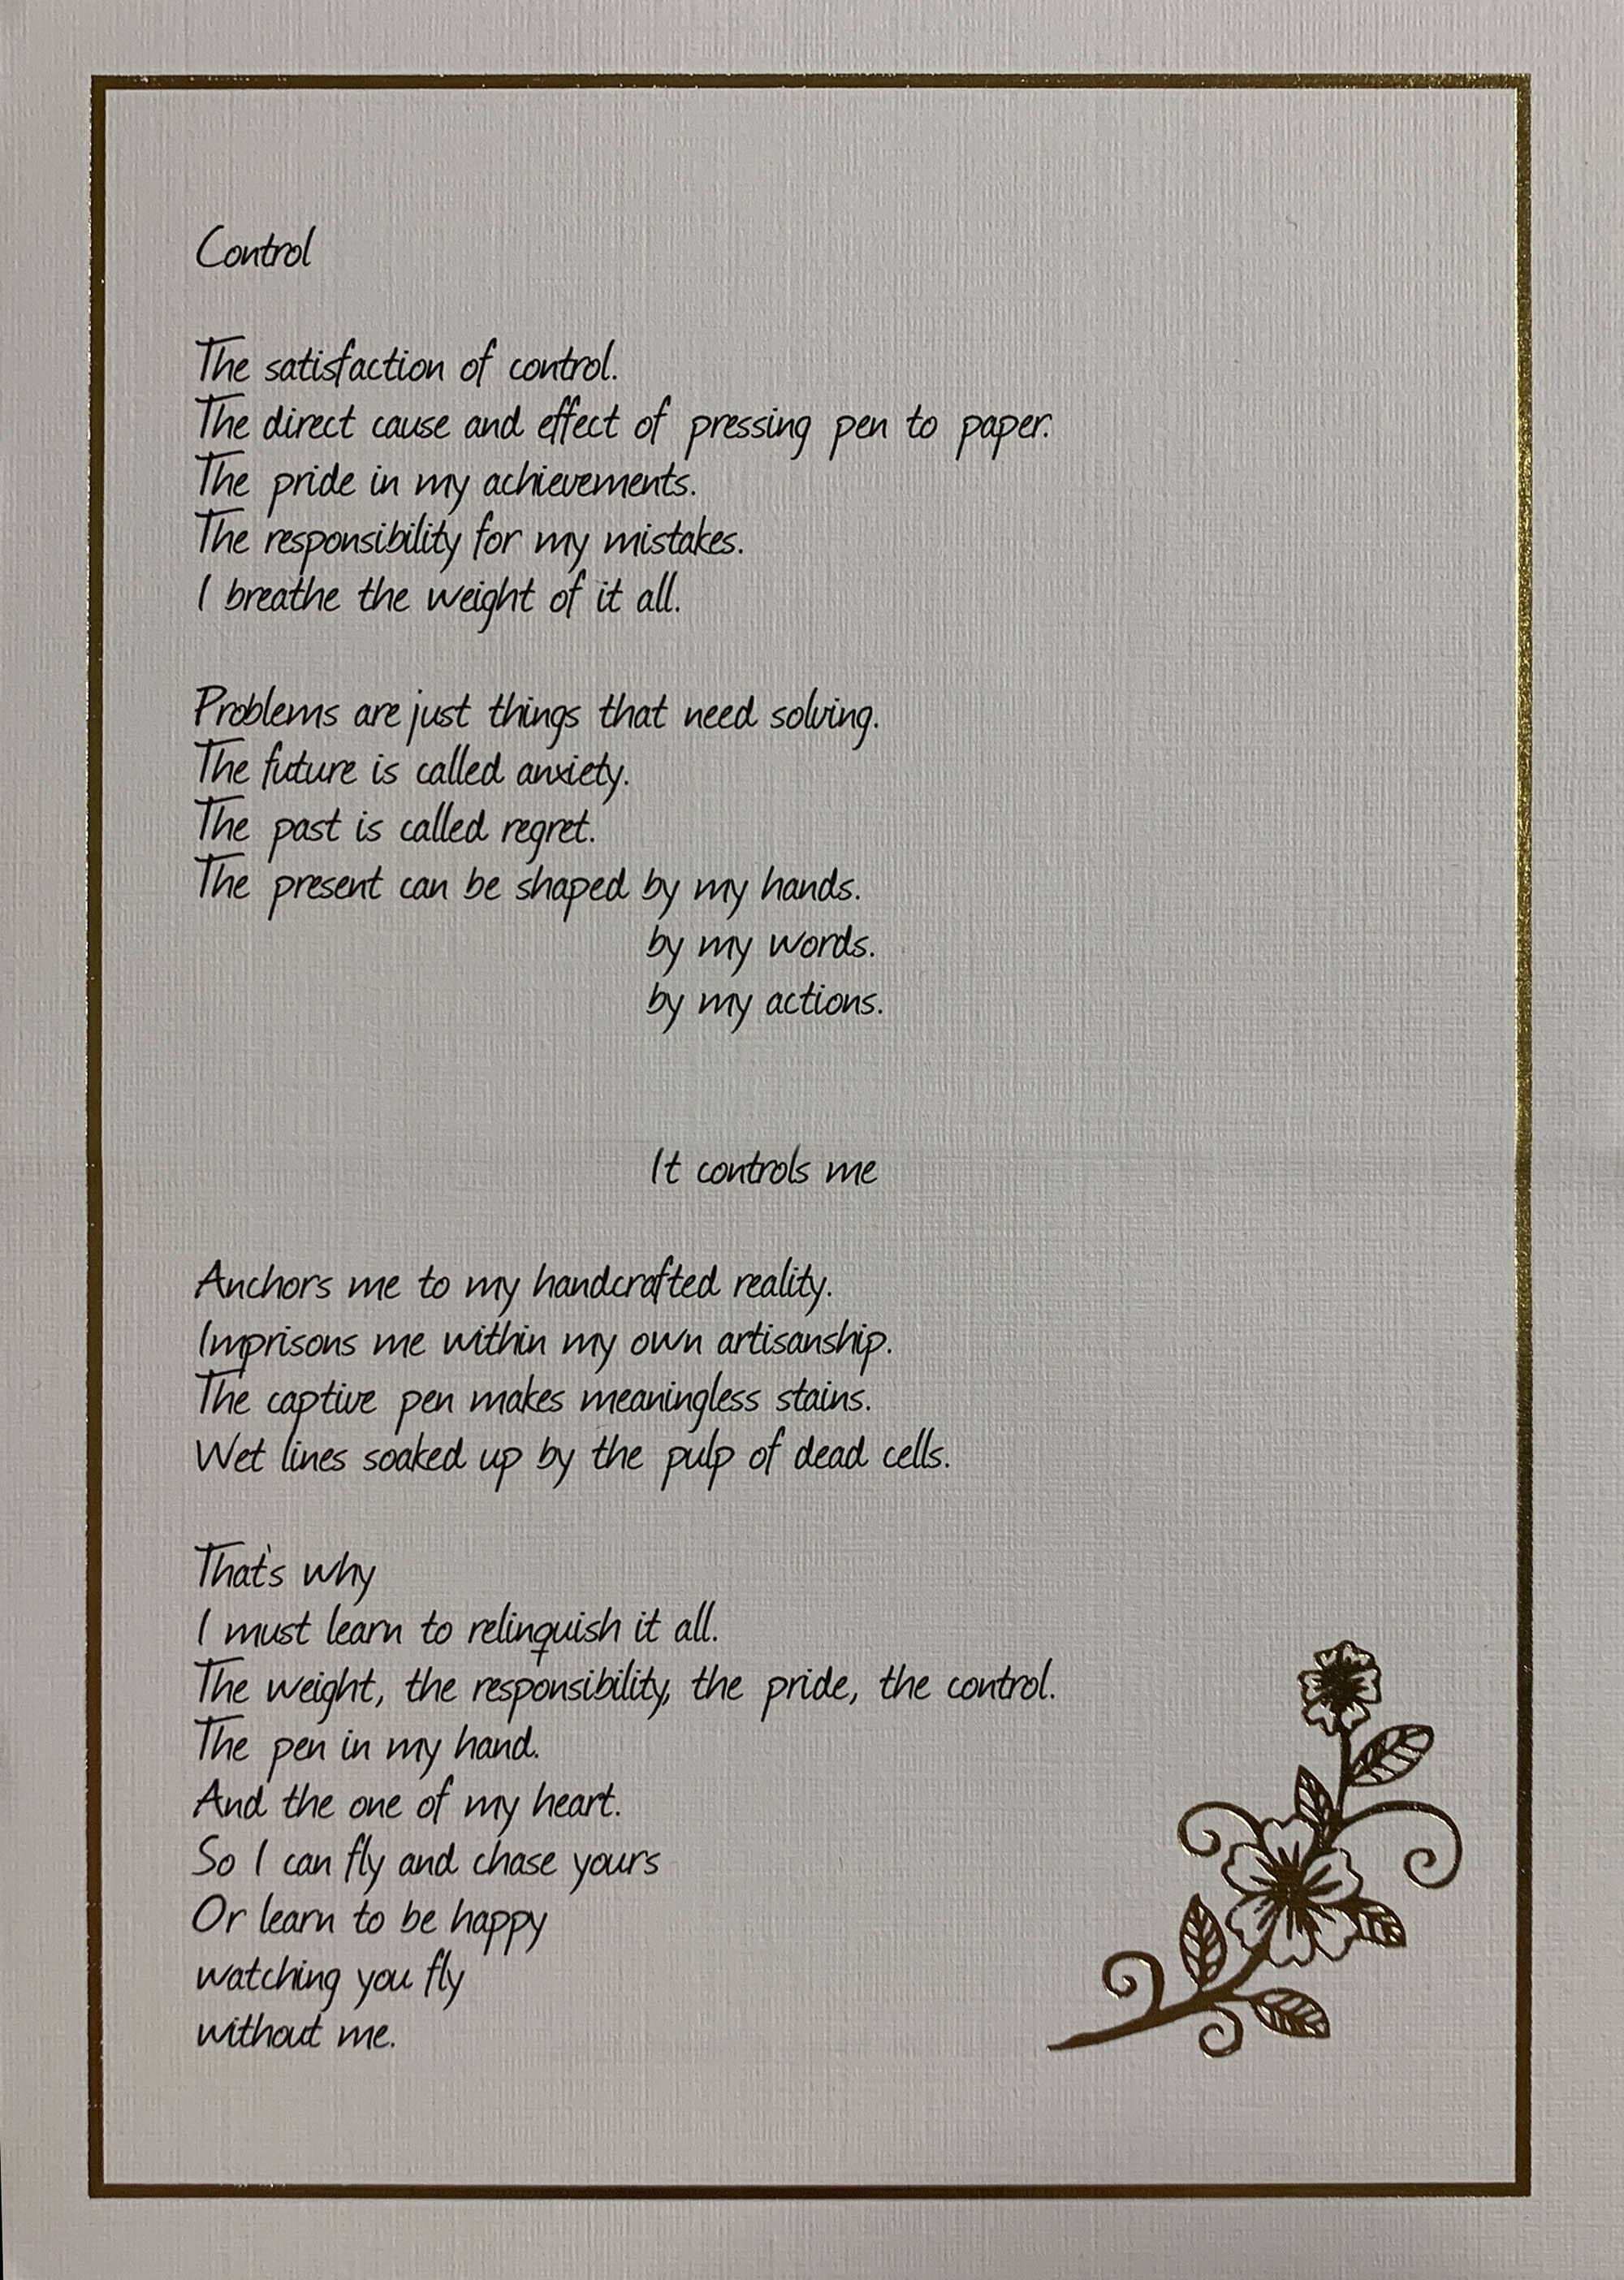 Control
The satisfaction of control.
The direct cause and effect of pressing pen to paper.
The pride in my achievements.
The responsibility for my mistakes.
I breathe the weight of it all.
Problems are just things that need solving.
The future is called anxiety.
The past is called regret.
The present can be shaped by my hands.
by my words.
by my actions.
It controls me
Anchors me to my handcrafted reality.
Imprisons me within my own artisanship.
The captive pen makes meaningless stains.
Wet lines soaked up by the pulp of dead cells.
That's why
I must learn to relinquish it all.
The weight, the responsibility, the pride, the control.
The pen in my hand.
And the one of my heart.
So I can fly and chase yours
Or learn to be happy
watching you fly
without me.